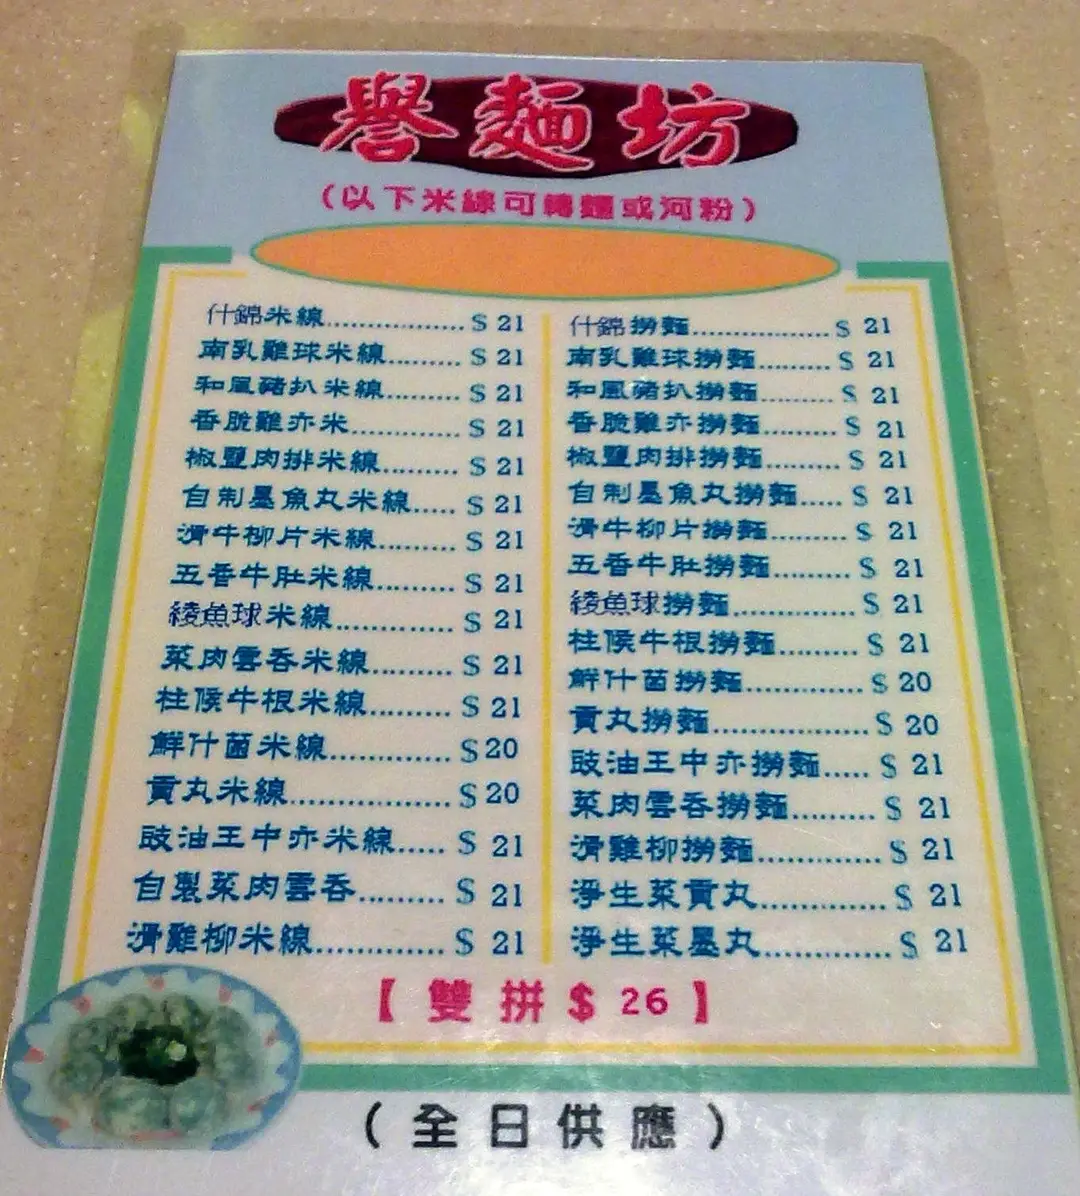 譽麵坊
(以下米線可轉麵或河粉)
什錦米線................. $ 21
南乳雞球米線......... $ 21
和風豬扒米線......... $ 21
香脆雞亦米............. $ 21
椒鹽肉排米線......... $ 21
自制墨魚丸米線..... $ 21
滑牛柳片米線......... $ 21
五香牛肚米線......... $ 21
綾魚球米線.............. $ 21
菜肉雲吞米線......... $ 21
柱侯牛根米線......... $ 21
鮮什菌米線............. $ 20
貢丸米線................. $ 20
豉油王中亦米線..... $ 21
自製菜肉雲吞......... $ 21
滑雞柳米線............. $ 21
什錦撈麵................. $ 21
南乳雞球撈麵......... $ 21
和風豬扒撈麵......... $ 21
香脆雞亦撈麵......... $ 21
椒鹽肉排撈麵......... $ 21
自制墨魚丸撈麵..... $ 21
滑牛柳片撈麵......... $ 21
五香牛肚撈麵......... $ 21
綾魚球撈麵.............. $ 21
柱侯牛根撈麵......... $ 21
鮮什菌撈麵............. $ 20
貢丸撈麵................. $ 20
豉油王中亦撈麵..... $ 21
菜肉雲吞撈麵......... $ 21
滑雞柳撈麵............. $ 21
淨生菜貢丸............. $ 21
淨生菜墨丸............. $ 21
【雙拼$ 26】
(全日供應)